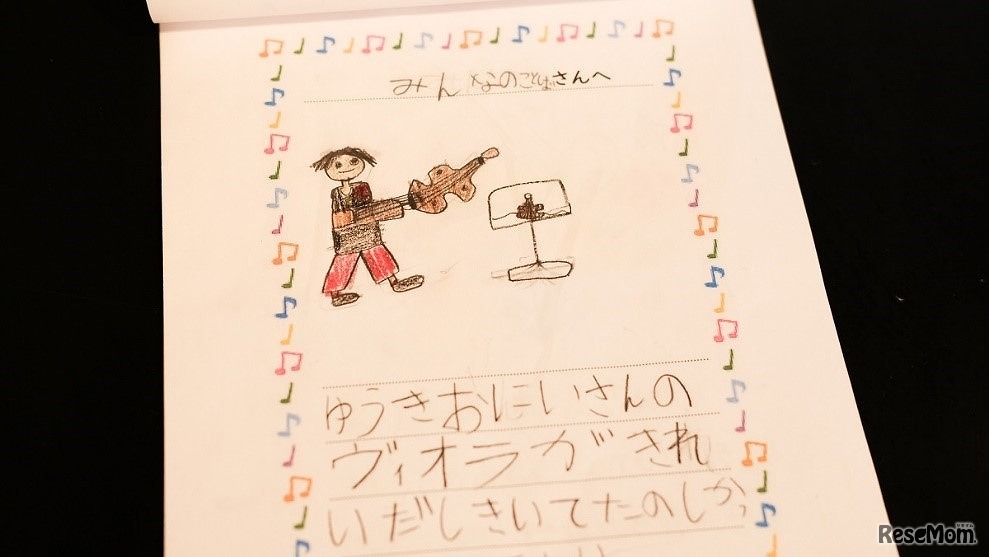 みんなのことばさんへ
ゆうきおにいさんの
ヴィオラがきれ
いだしきいてたのしかっ
ReseMom